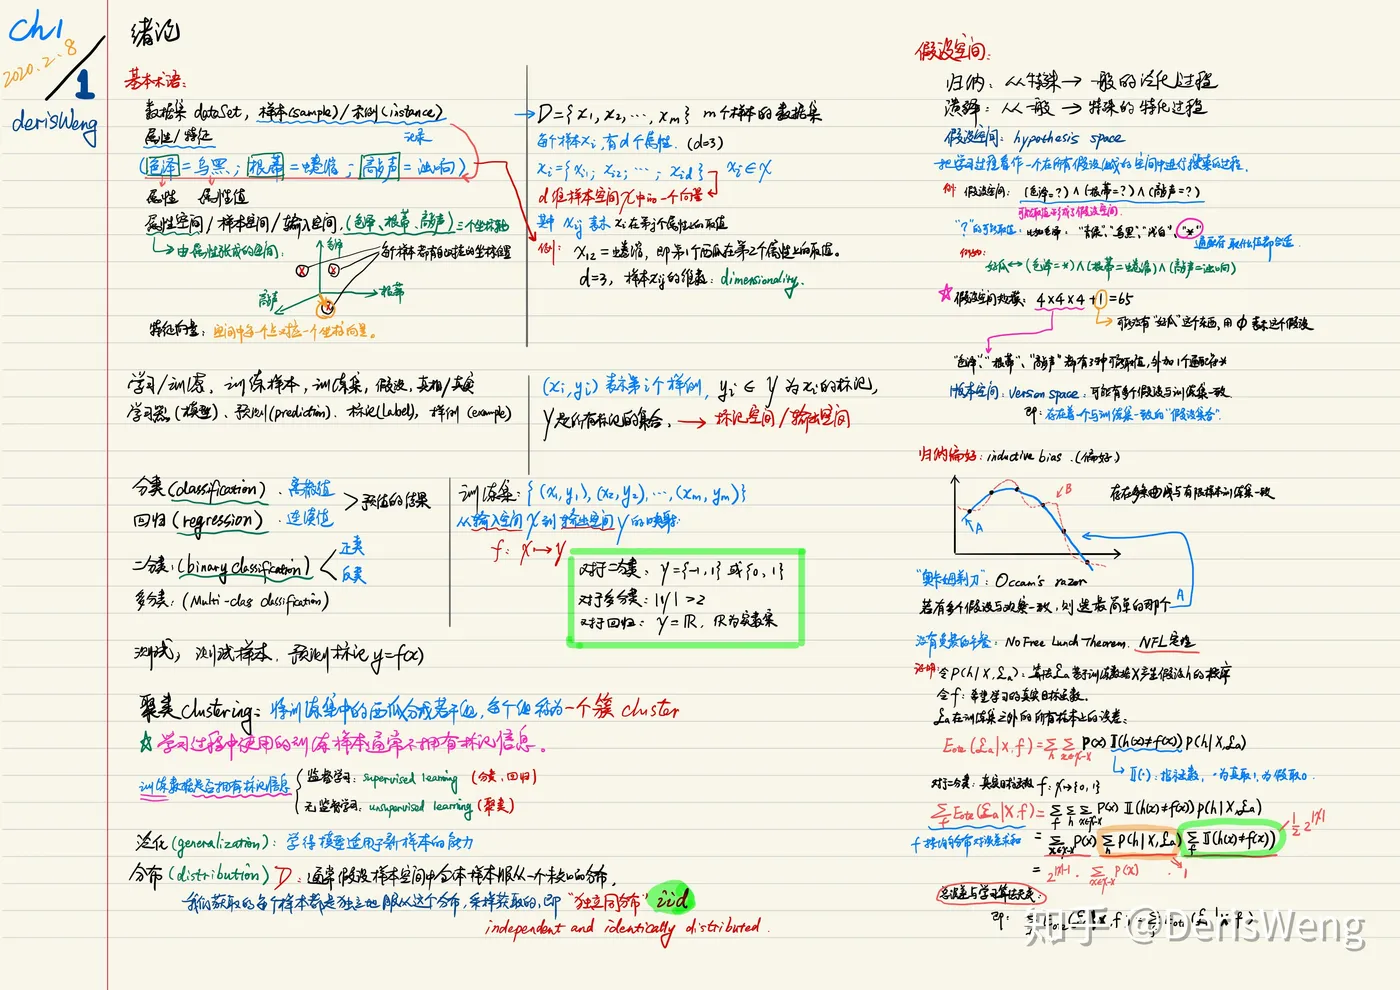 ch1
2020.2.8
1
derisWeng
绪论
基本术语:
数据集 dataSet, 样本(sample)/示例(instance)
属性/特征 记录
(色泽=乌黑; 根蒂=蜷缩; 敲声=浊响)
属性 属性值
属性空间/样本空间/输入空间,(色泽、根蒂、敲声)三个坐标轴
由属性张成的空间:
色泽
根蒂
敲声
每个样本都有自己的坐标位置
特征向量: 空间中每一个点对应一个坐标向量。
D={x1, x2, ..., xm} m个样本的数据集
每个样本xi,有d个属性. (d=3)
xi={xi1; xi2; ...; xid} xi∈X
d维样本空间X中的一个向量
其中 xij 表示 xi在第j个属性上的取值
例: x12=蜷缩, 即第1个西瓜在第2个属性上的取值。
d=3, 样本xij的维数: dimensionality.
学习/训练, 训练样本, 训练集, 假设, 真相/真实
学习器(模型)、预测(prediction)、标记(label), 样例(example)
(xi,yi) 表示第i个样例, yi∈Y 为xi的标记,
Y是所有标记的集合, → 标记空间/输出空间
分类(classification). 离散值
回归(regression). 连续值
预值的结果
二分类: (binary classification) 正类
反类
多分类: (Multi-clas classification)
训练集: {(x1,y1), (x2,y2), ..., (xm,ym)}
从输入空间X到输出空间Y的映射:
f: X↦Y
对于二分类: Y={-1,1} 或{0,1}
对于多分类: |Y|>2
对于回归: Y=ℝ, ℝ为实数集
测试, 测试样本, 预测标记y=f(x)
聚类clustering: 将训练集中的西瓜分成若干组, 每个组称为一个簇 cluster
☆学习过程中使用的训练样本通常不拥有标记信息。
训练数据是否拥有标记信息
监督学习: supervised learning (分类、回归)
无监督学习: unsupervised learning (聚类)
泛化(generalization): 学得模型适用于新样本的能力
分布(distribution) D: 通常假设样本空间中全体样本服从一个未知的分布,
我们获取的每个样本都是独立地服从这个分布,采样获取的,即 "独立同分布" iid
independent and identically distributed.
假设空间:
归纳: 从特殊→一般的泛化过程
演绎: 从一般→特殊的特化过程
假设空间: hypothesis space
把学习过程看作一个在所有假设组成的空间中进行搜索的过程.
例 假设空间: (色泽=?)∧(根蒂=?)∧(敲声=?)
可能取值形成了假设空间.
"?"的可能取值: 比如色泽: "青绿","乌黑","浅白","*"
通配符 取什么值都合适
例如:
好瓜↔(色泽=*)∧(根蒂=蜷缩)∧(敲声=浊响)
☆ 假设空间规模: 4×4×4+1=65
可能没有"好瓜"这个东西,用∅表示这个假设
"色泽"、"根蒂"、"敲声"都有3种可能取值,外加1个通配符*
版本空间: version space: 可能有多个假设与训练集一致.
即: 存在着一个与训练集一致的"假设集合".
归纳偏好: inductive bias. (偏好)
A
B
存在多条曲线与有限样本训练集一致
"奥卡姆剃刀": Occam's razor
若有多个假设与观察一致, 则选最简单的那个
A
没有免费的午餐: No Free Lunch Theorem. NFL定理
证明: 令P(h|X,£a): 算法£a基于训练数据X产生假设h的概率
令f: 希望学习的真实目标函数.
£a在训练集之外的所有样本上的误差:
Eote(£a|X,f)=∑h ∑x∈X-X P(x) 𝕀(h(x)≠f(x)) P(h|X,£a)
𝕀(·): 指示函数, ·为真取1,为假取0.
对于二分类: 真实目标函数 f: X↦{0,1}
∑f Eote(£a|X,f)=∑f ∑h ∑x∈X-X P(x) 𝕀(h(x)≠f(x)) P(h|X,£a)
f 按均匀分布对误差求和
= ∑x∈X-X P(x) ∑h P(h|X,£a) ∑f 𝕀(h(x)≠f(x))
½ 2^|X|
= 2^|X|-1 · ∑x∈X-X P(x) · 1
总误差与学习算法无关:
知乎 @DerisWeng